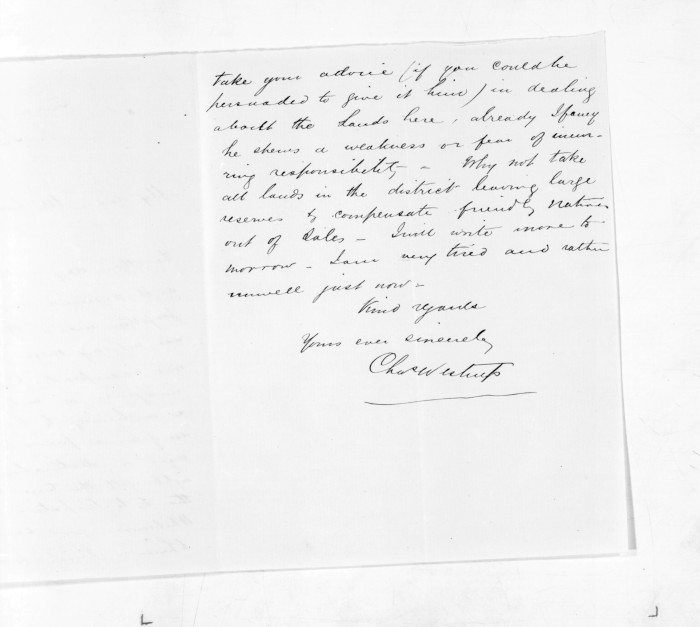 take your advice (if you could be
persuaded to give it him) in dealing
about the lands here, already I fancy
he shews a weakness or fear of incur-
ring responsibility – Why not take
all lands in the district leaving large
reserves & compensate friendly natives
out of Sales – I will write more to
morrow – I am very tired and rather
unwell just now –
Kind regards
Yours ever sincerely
Chas Westrup